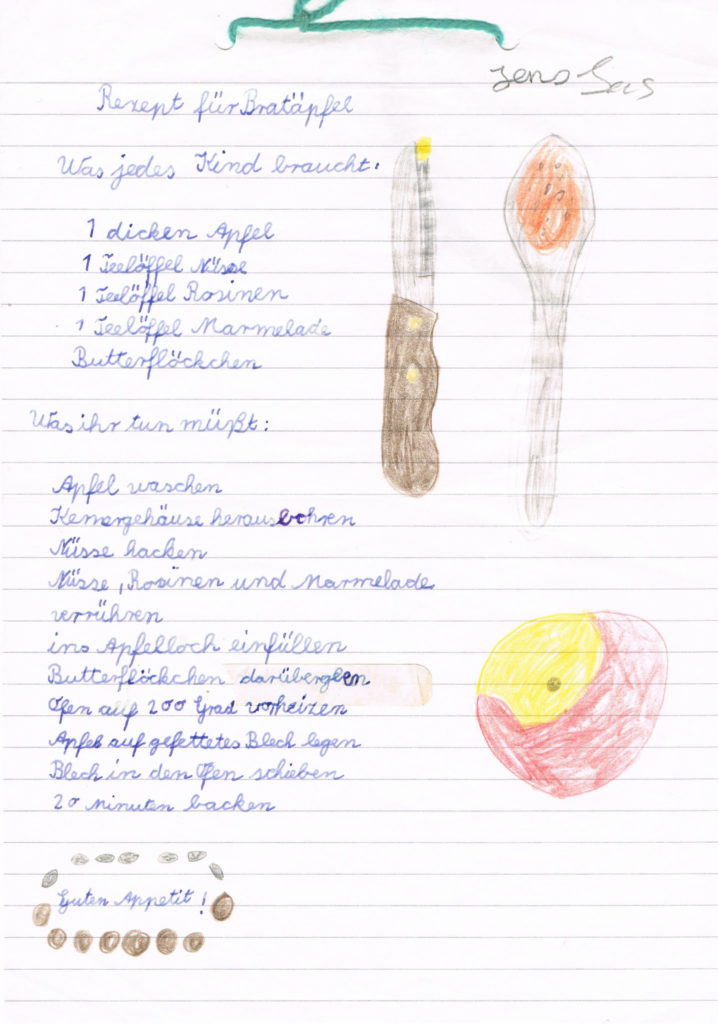 Jens
Rezept für Bratäpfel
Was jedes Kind braucht:
1 dicken Apfel
1 Teelöffel Nüsse
1 Teelöffel Rosinen
1 Teelöffel Marmelade
Butterflöckchen
Was ihr tun müßt:
Apfel waschen
Kernergehäuse herausbohren
Nüsse hacken
Nüsse, Rosinen und Marmelade
verrühren
ins Apfelloch einfüllen
Butterflöckchen darübergeben
Ofen auf 200 Grad vorheizen
Apfel auf gefettetes Blech legen
Blech in den Ofen schieben
20 Minuten backen
Guten Appetit!